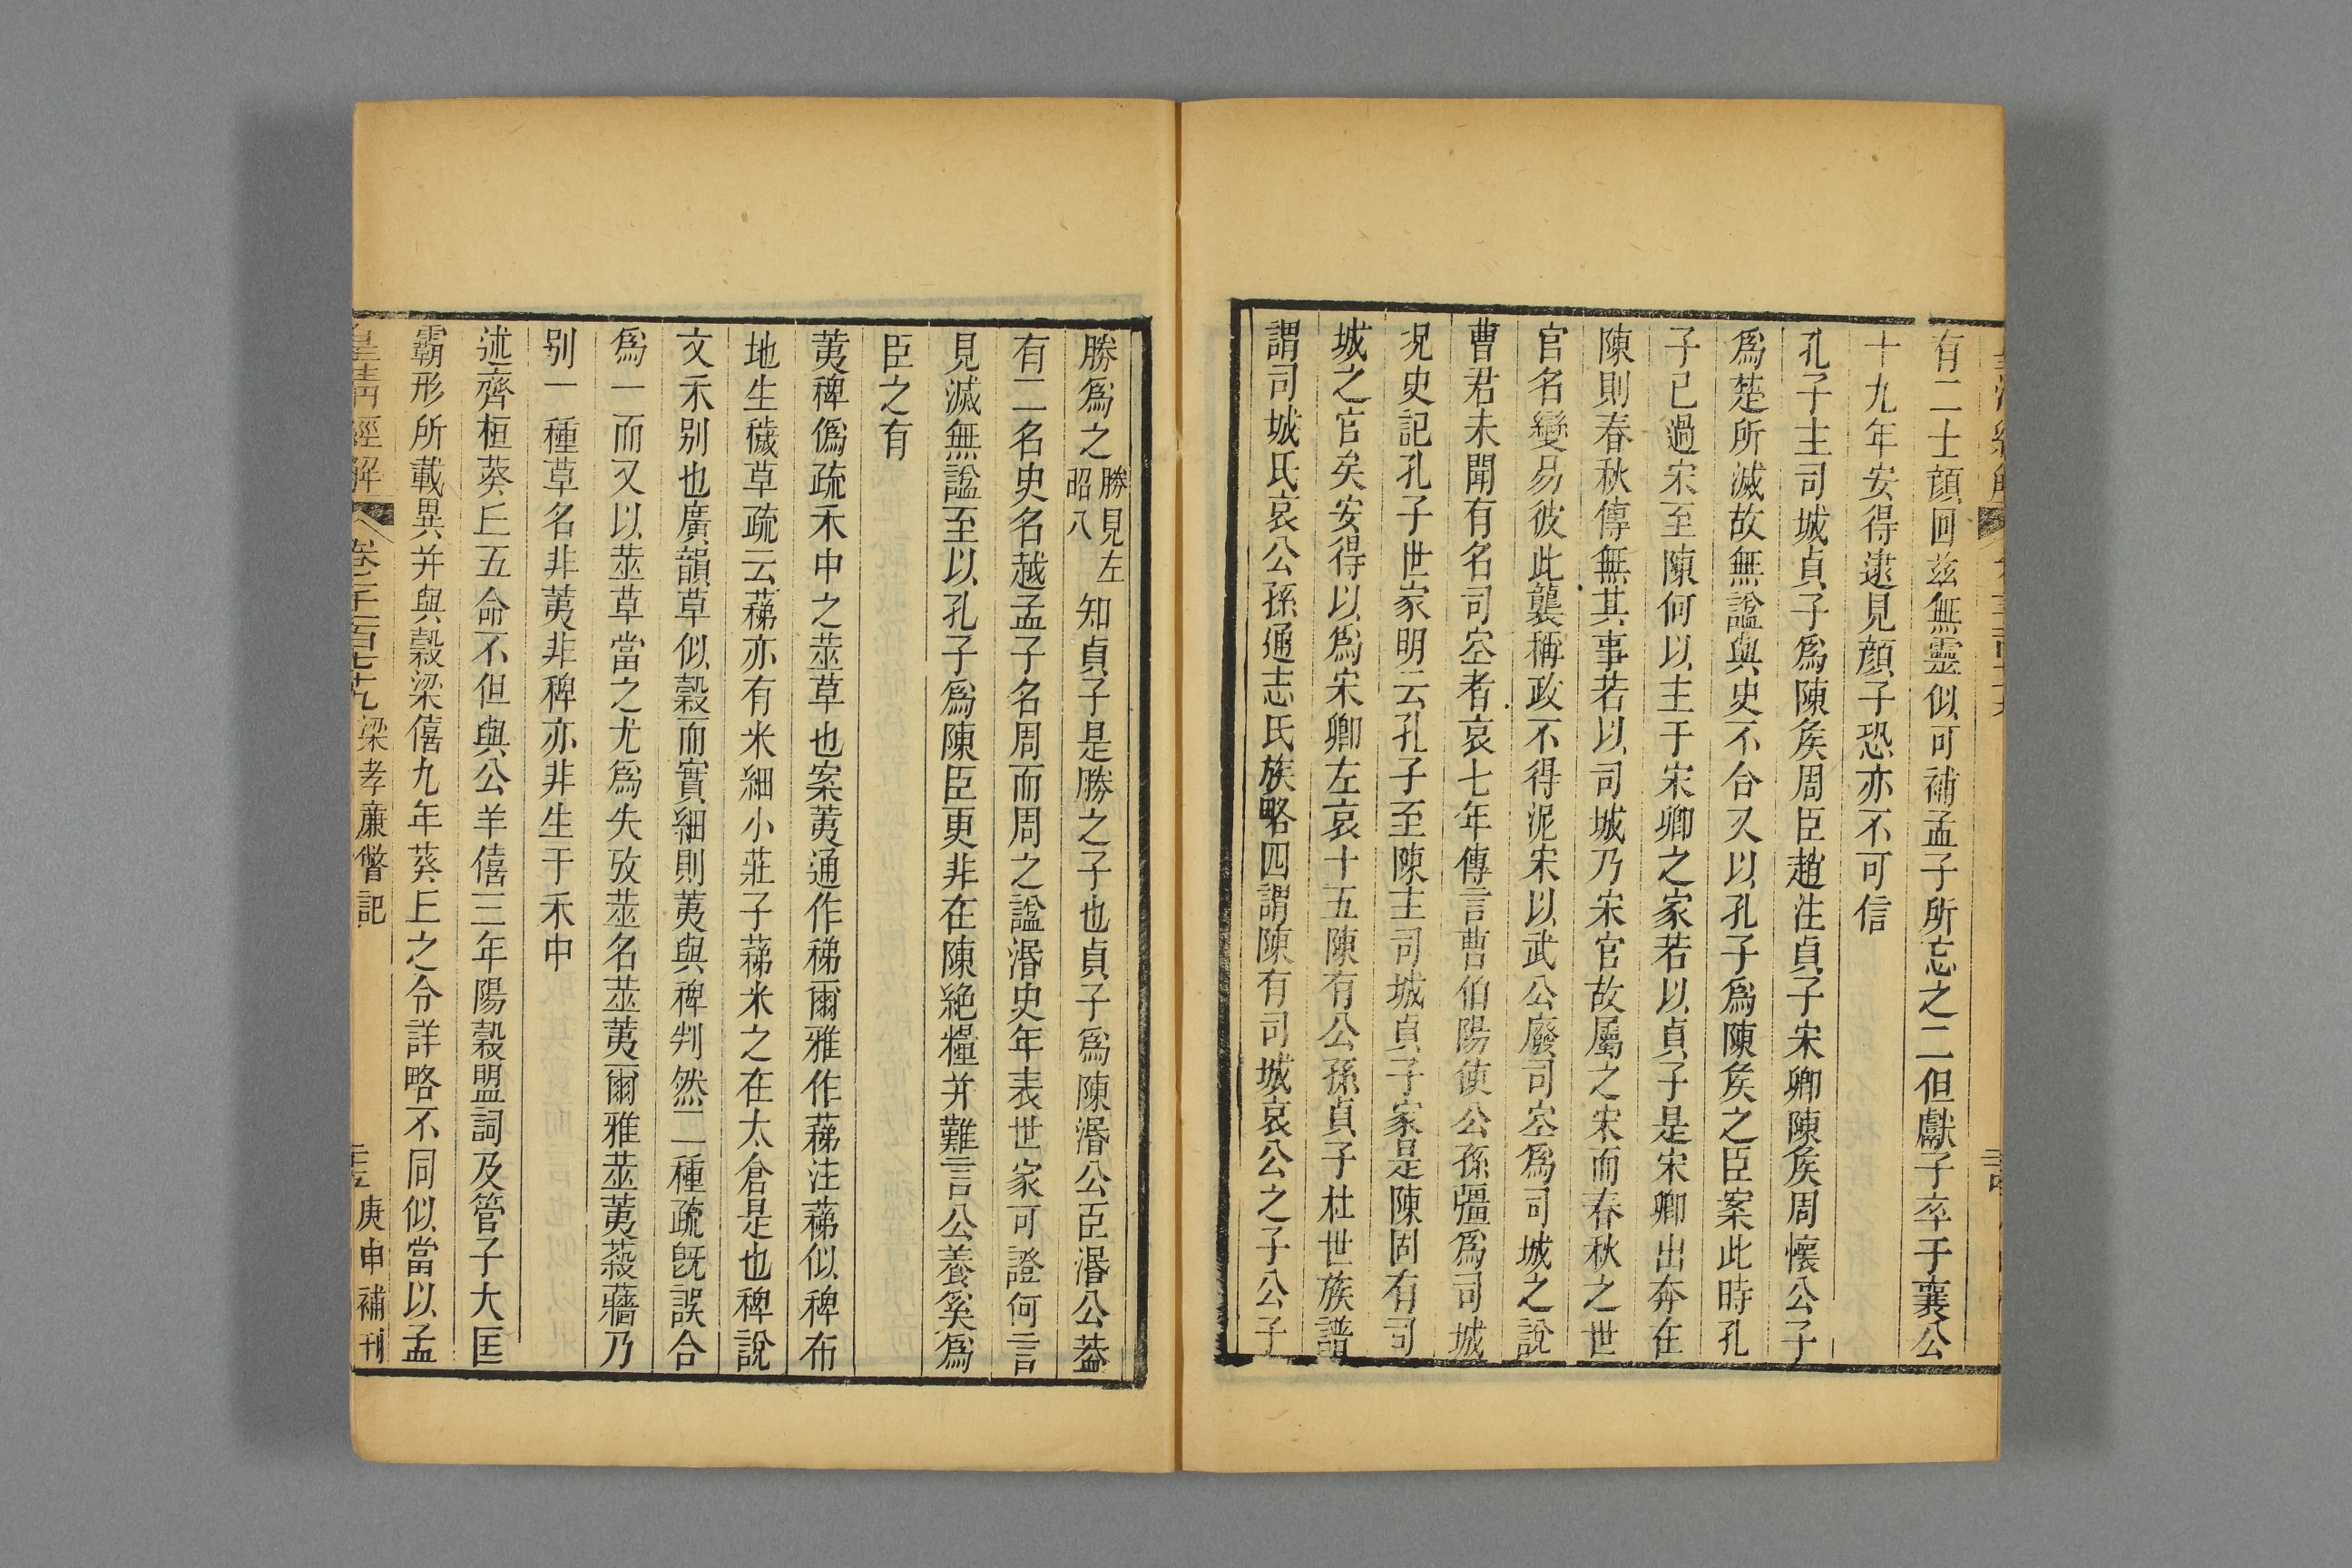 有二士顔回兹無靈似可補孟子所忘之二但獻子卒于襄公
十九年安得逮見顔子恐亦不可信
孔子主司城貞子爲陳矦周臣趙注貞子宋卿陳矦周懷公子
爲楚所滅故無諡與史不合又以孔子爲陳矦之臣案此時孔
子已過宋至陳何以主于宋卿之家若以貞子是宋卿出奔在
陳則春秋傳無其事若以司城乃宋官故屬之宋而春秋之世
官名變易彼此襲稱政不得泥宋以武公廢司空爲司城之說
曹君未聞有名司空者哀七年傳言曹伯陽使公孫彊爲司城
況史記孔子世家明云孔子至陳主司城貞子家是陳固有司
城之官矣安得以爲宋卿左哀十五陳有公孫貞子杜世族譜
謂司城氏哀公孫通志氏族略四謂陳有司城哀公之子公子
勝爲之勝見左昭八知貞子是勝之子也貞子爲陳湣公臣湣公葢
有二名史名越孟子名周而周之諡湣史年表世家可證何言
見滅無諡至以孔子爲陳臣更非在陳絶糧并難言公養奚爲
臣之有
荑稗僞疏禾中之莁草也案荑通作稊爾雅作蕛注蕛似稗布
地生穢草疏云蕛亦有米細小莊子蕛米之在太倉是也稗說
文禾别也廣韻草似穀而實細則荑與稗判然二種疏旣誤合
爲一而又以莁草當之尤爲失攷莁名莁荑爾雅莁荑蔱蘠乃
别一種草名非荑非稗亦非生于禾中
述齊桓葵丘五命不但與公羊僖三年陽穀盟詞及管子大匡
霸形所載異并與穀梁僖九年葵丘之令詳略不同似當以孟
皇淸經解 卷二千三百七十九 梁孝廉瞥記 庚申補刊